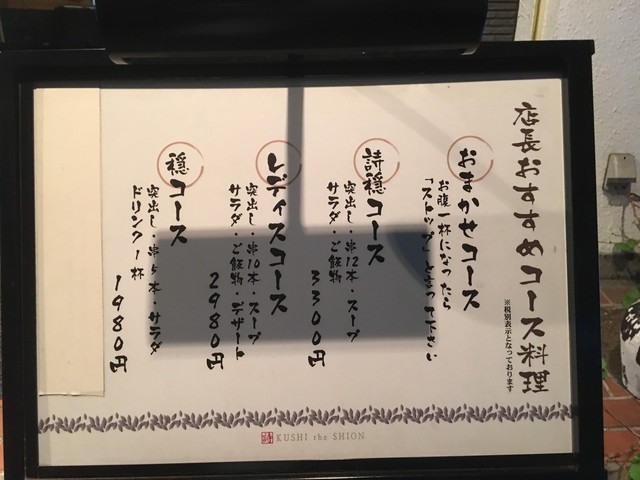 店長おすすめコース料理
※税別表示となっております
おまかせコース
お腹一杯になったら
「ストップ」と言って下さい
詩穏コース
突出し・串12本・スープ
サラダ・ご飯物
3300円
レディスコース
突出し・串10本・スープ
サラダ・ご飯物・デザート
2980円
穏コース
突出し・串5本・サラダ
ドリンク1杯
1980円
KUSHI the SHION